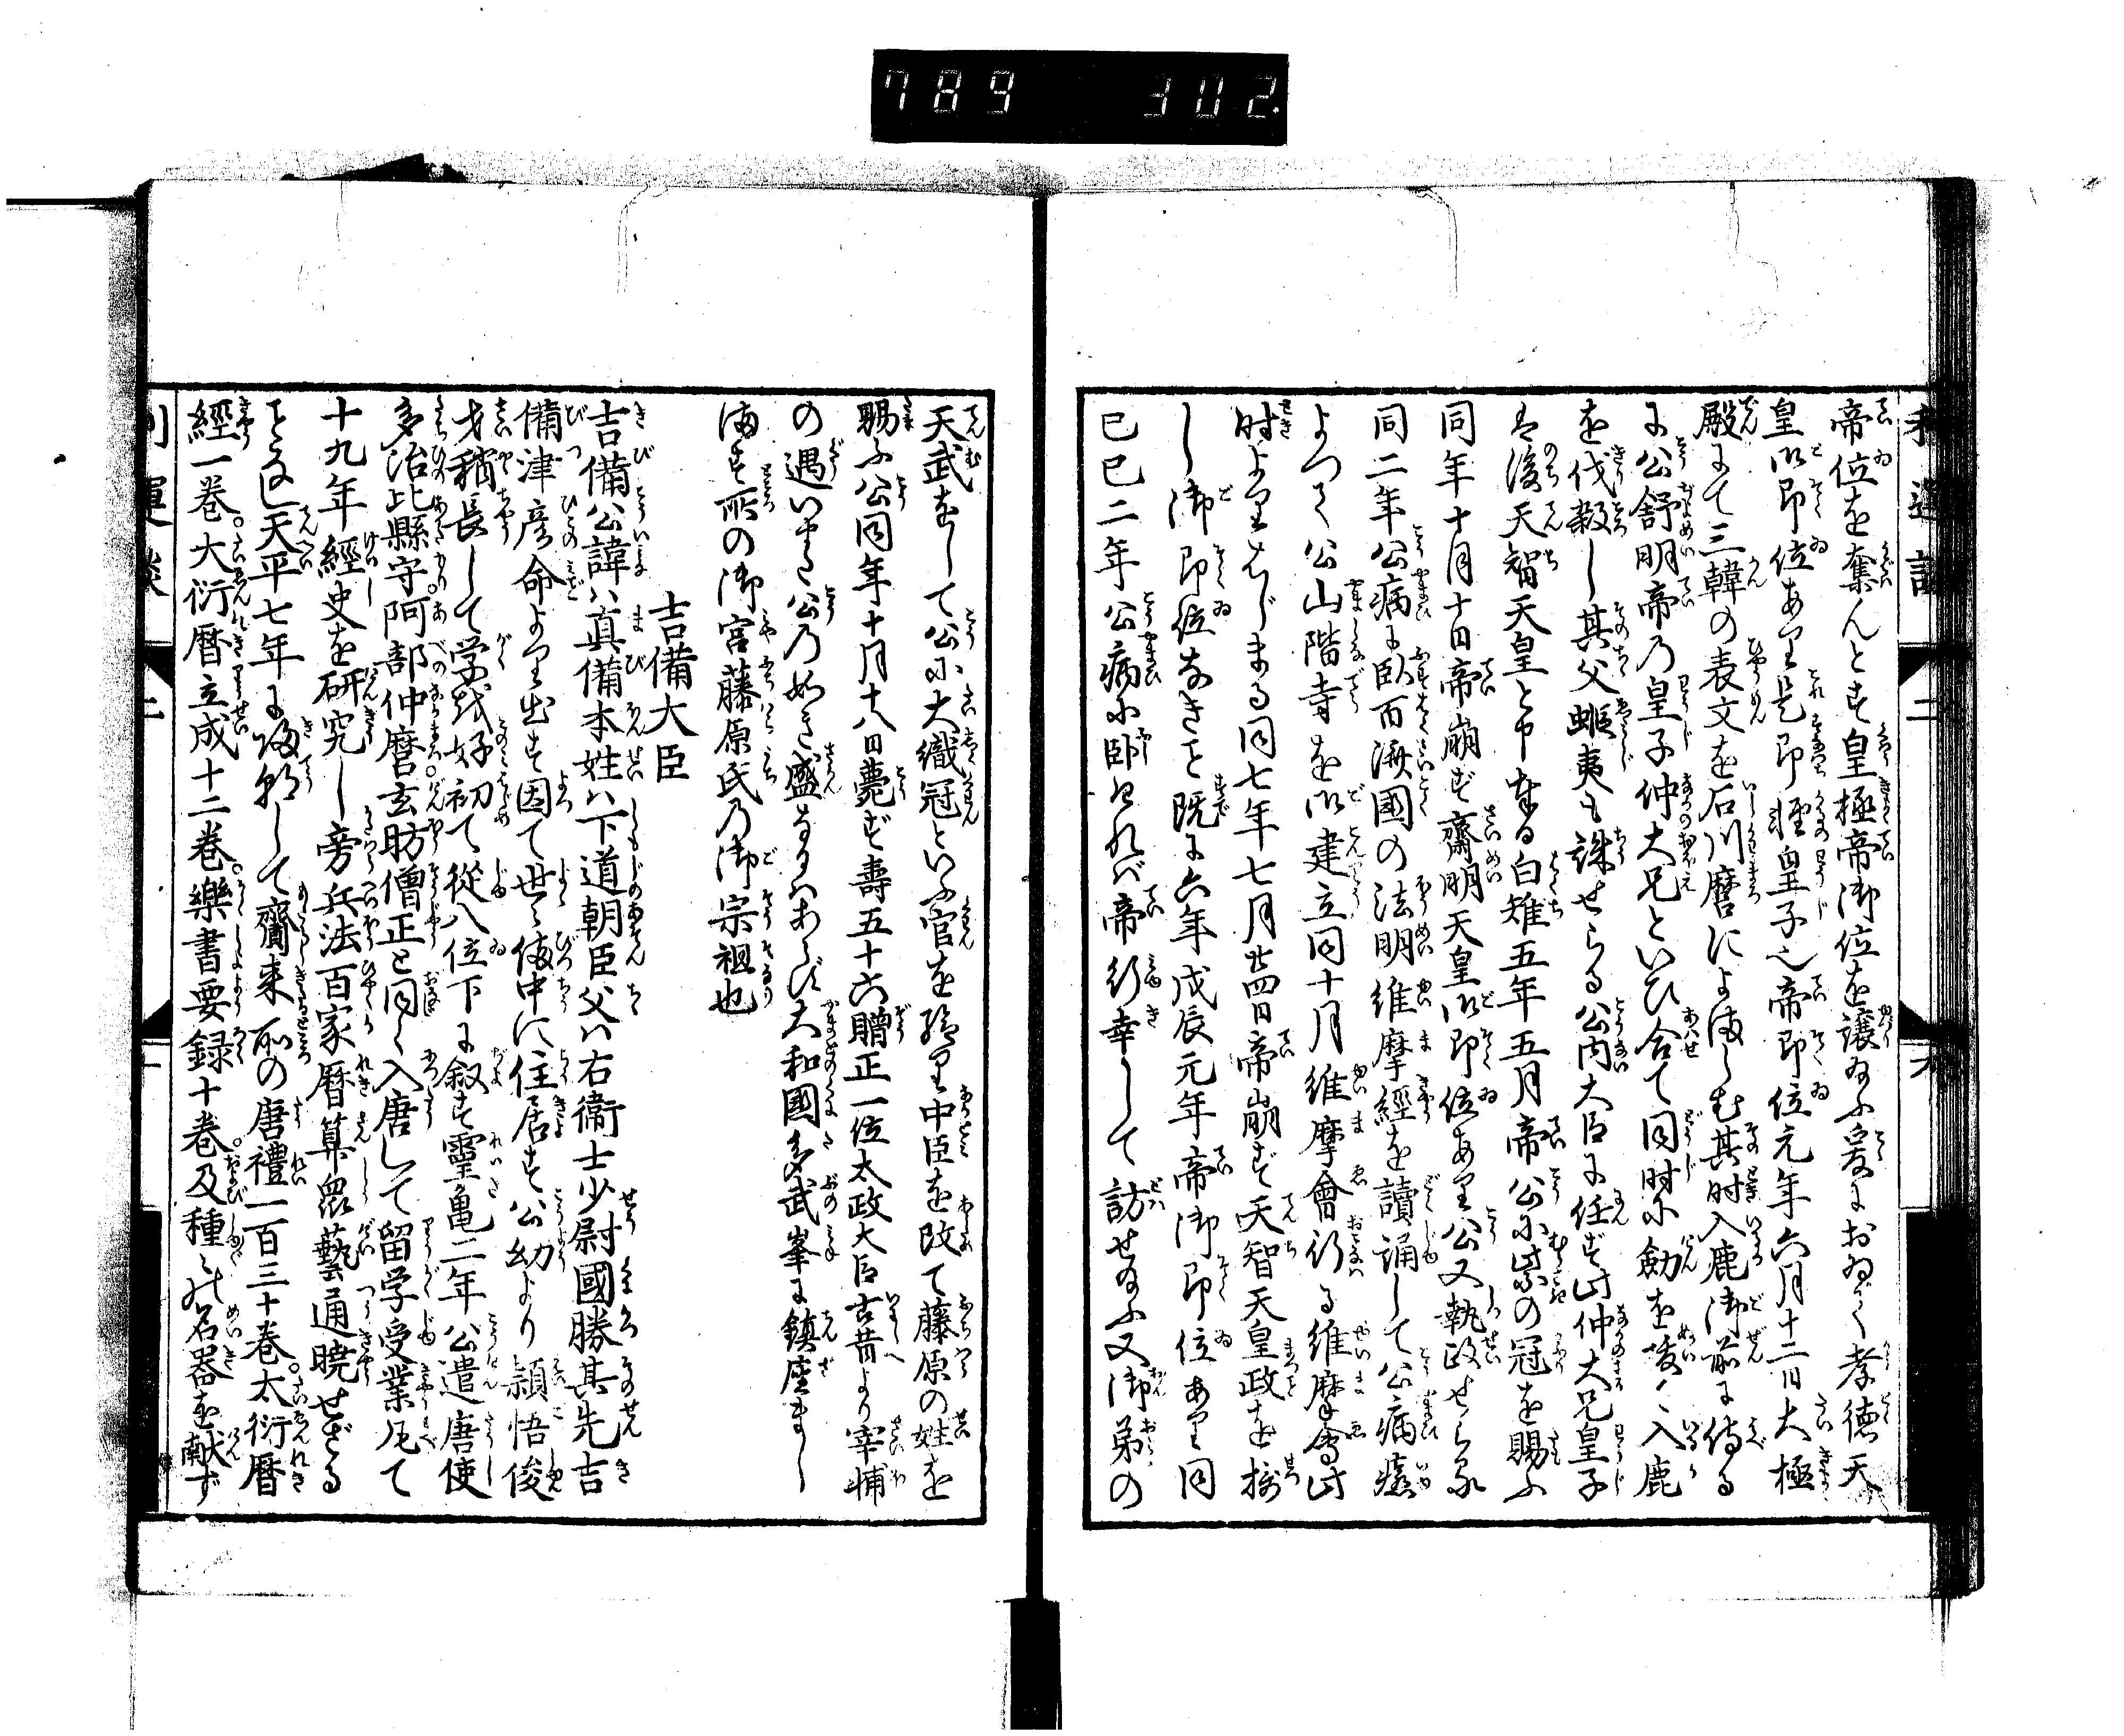 789 302
帝位を奪んとす皇極帝御位を譲給ふ爰におゐて孝徳天
皇御即位あり是即軽皇子也帝即位元年六月十二日大極
殿にて三韓の表文を石川麿によましむ其時入鹿御前に侍る
に公舒明帝の皇子仲大兄といひ合て同時に劒を抜て入鹿
を伐殺し其父蝦夷も誅せらる公内大臣に任ず此仲大兄皇子
は後天智天皇と申奉る白雉五年五月帝公に紫の冠を賜ふ
同年十月十日帝崩ず齋明天皇御即位あり公又執政せらる
同二年公病に臥百濟國の法明維摩經を讀誦して公病癒
よつて公山階寺を御建立同十月維摩會行る維摩會此
時よりはじまる同七年七月廿四日帝崩ず天智天皇政を摂
し御即位なきこと既に六年戊辰元年帝御即位あり同
己巳二年公病に臥けれバ帝行幸して訪せ給ふ又御弟の
天武をして公に大織冠といふ官を給り中臣を改て藤原の姓を
賜ふ公同年十月十八日薨ず壽五十六贈正一位太政大臣古昔より宰補
の遇いまだ公の如き盛なるハあらず大和國多武峯に鎮座まし
ます所の御宮藤原氏の御宗祖也
吉備大臣
吉備公諱ハ真備本姓ハ下道朝臣父ハ右衞士少尉國勝其先吉
備津彦命より出す因て世〻備中に住居す公幼より頴悟俊
才稍長して学を好初て從八位下に叙す靈亀二年公遣唐使
多治比縣守。阿部仲麿。玄昉僧正と同く入唐して留学受業凡て
十九年經史を研究し旁兵法百家暦算衆藝通曉せざる
ことなし天平七年に歸朝して齎来所の唐禮一百三十巻。太衍暦
經一巻。大衍暦立成十二巻。樂書要録十巻。及種〻の名器を献ず